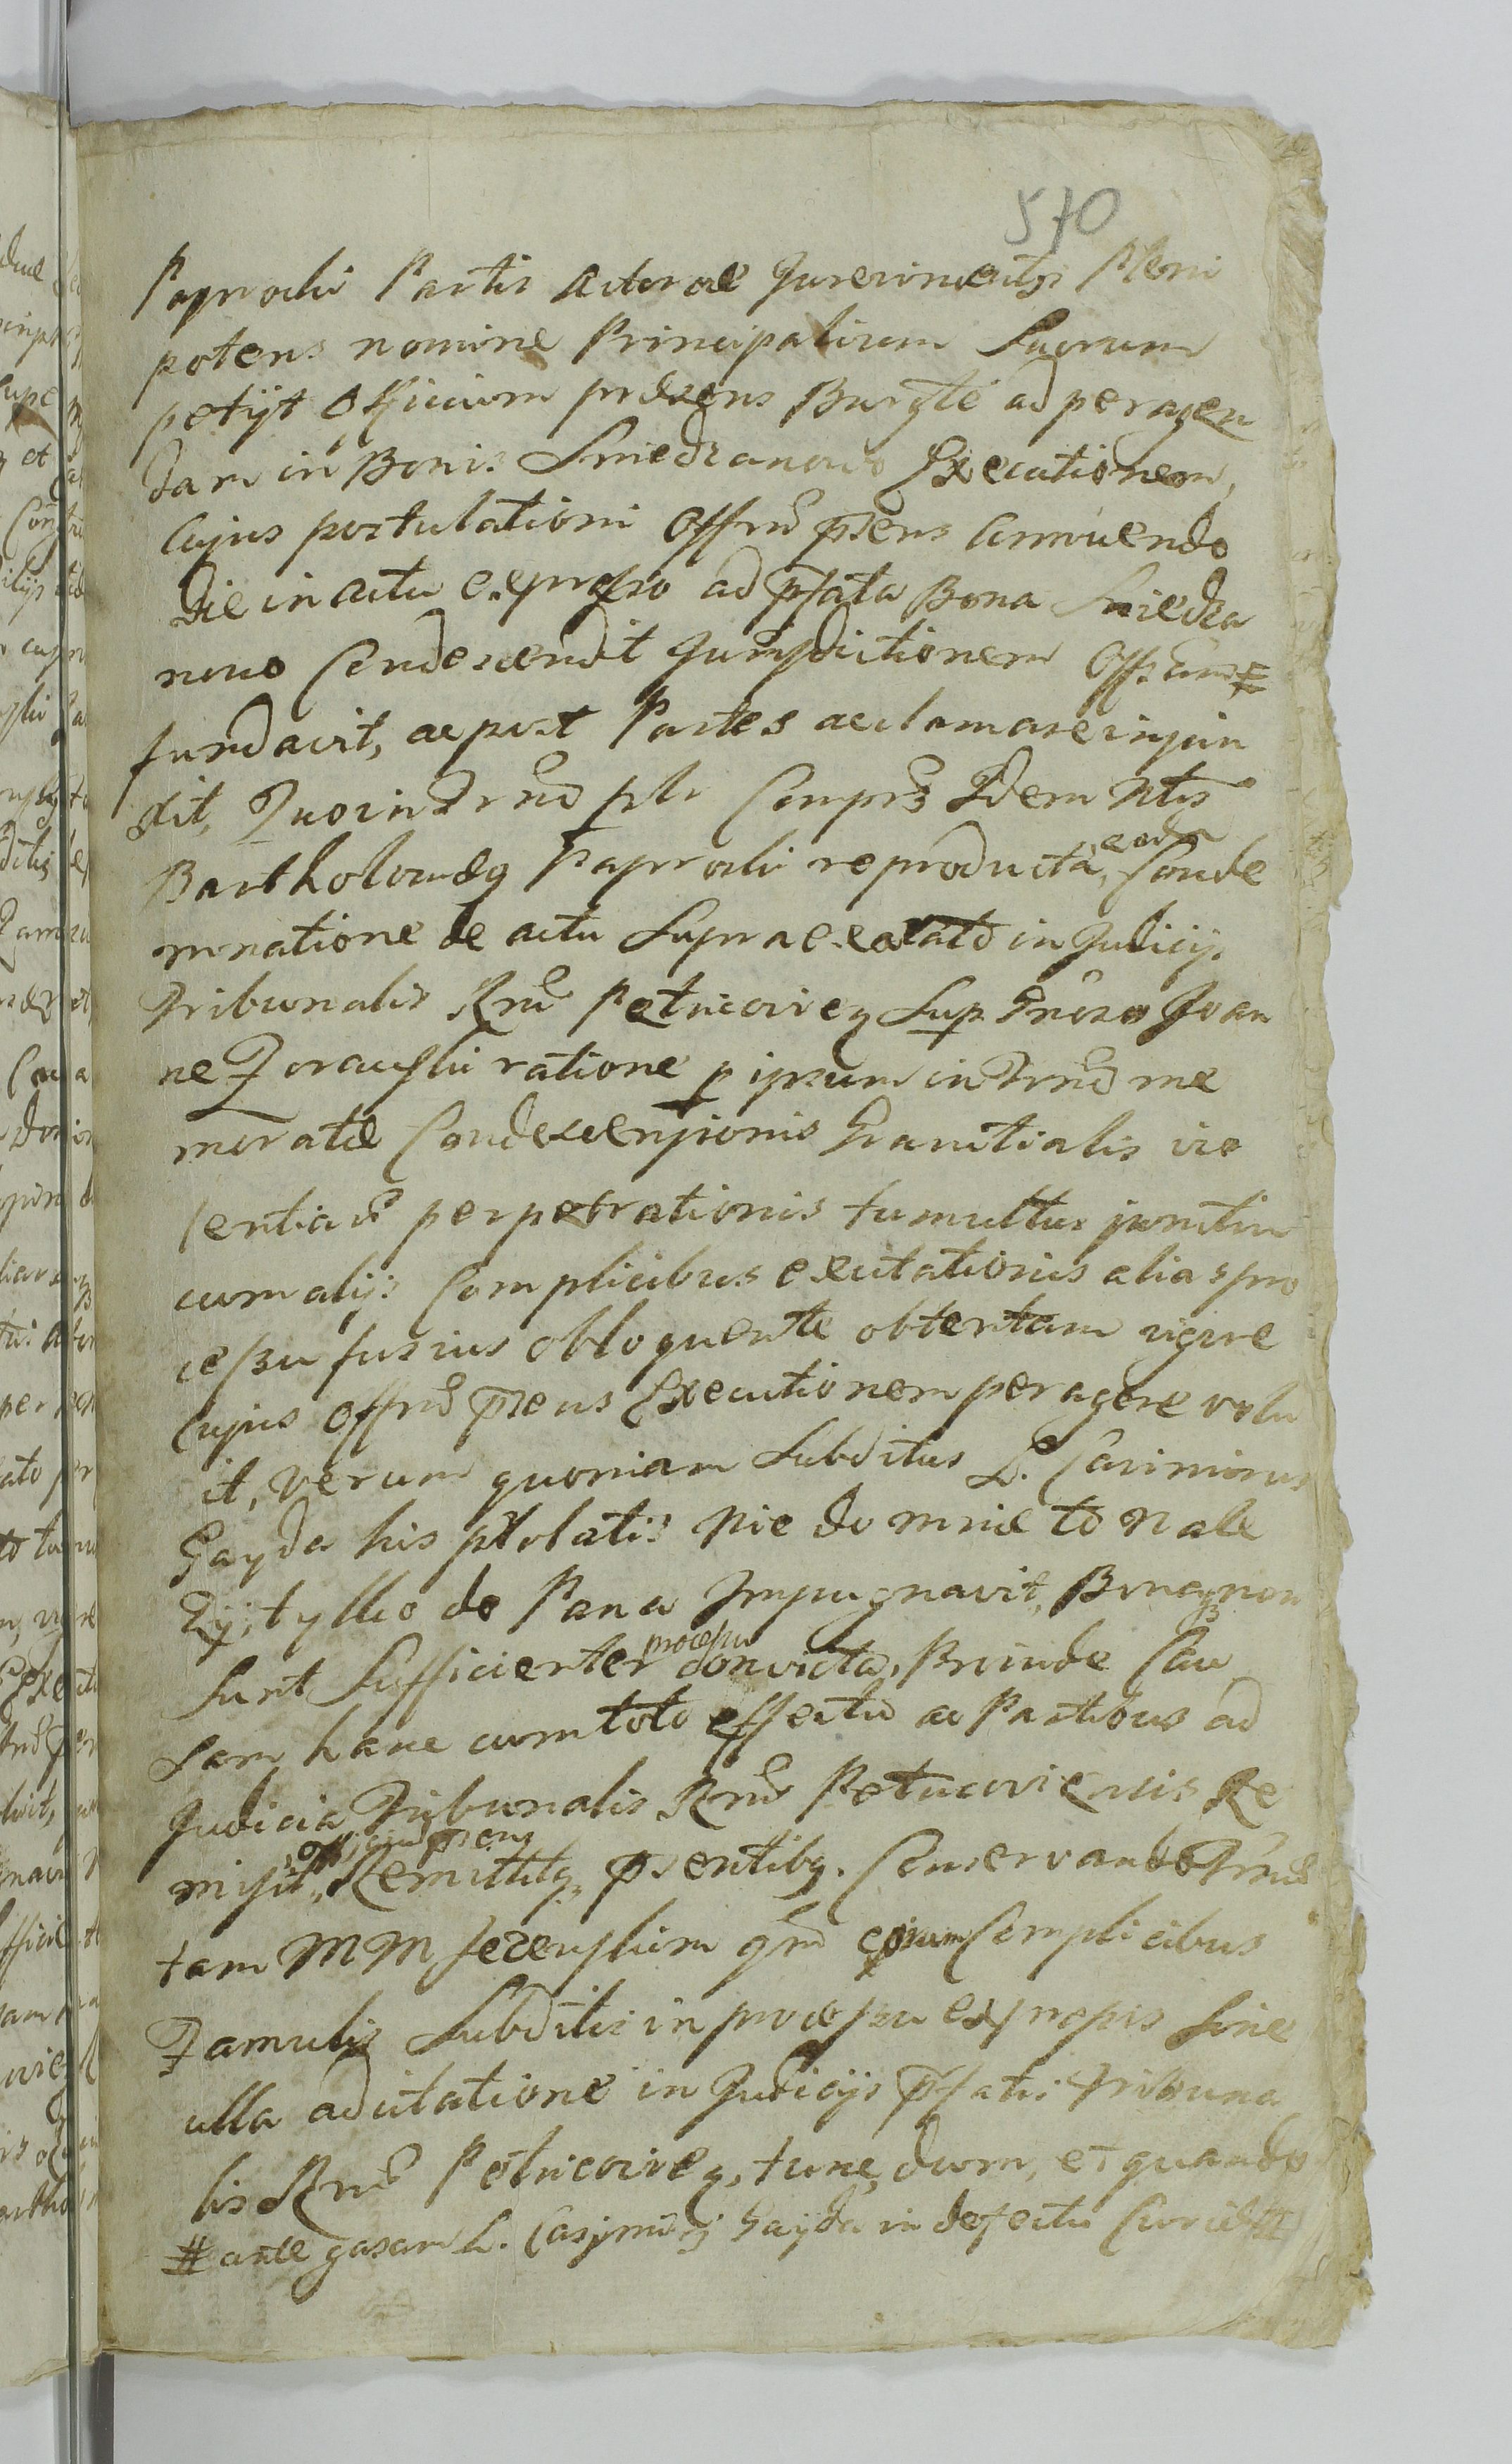 570
Paprocki Partis Actoreae Jurevincentis Pleni
potens nomine Principalium Suorum
petijt Officium praesens Burgte ad peragen
dam in Bonis Sniedzanowo Executionem,
Cujus postulationi Offm pñs annuendo
die in actu expresso ad pfata Bona Sniedza
nowo Condescendit Jurisdictionem Offsam #
fundavit, ac post Partes acclamare injun
xit, Quo in Trno ptr Comprs Idem Nlis
Bartholomeg Paprocki reproducta, eadem Conde
mnatione de actu Supra exarato in Judicijs
Tribunalis Rni Petricovieñ Sup Gnroso Joan
ne Zorawski ratione p ipsum in Trno me
moratae Condescensionis Granitialis vio
lentiarũ perpetrationis tumultus junctim
cum alijs Complicibus excitationis alias pro
cessu fusius obloquente obtentam vigore
Cujus Offm pñs Executionem peragere volu
it, Verum quoniam Subditus L. Casimirus
Gayda his prolatis Nie do mnie to nale
zy, tylko do Pana Impugnavit, Bonaq non
Sunt Sufficienter processu convicta, Proinde Cau
sam hanc cum toto effectu ac Partibus ad
Judicia Tribunalis Rni Petricoviensis Re
misit, Officium pñs Remittitq pñsentibg. Conservando Trnũ
tam MM Jezewskim qm eorum Complicibus
Famulis Subditis in processu expressis Sine
ulla adcitatione in Judicijs pfatis Tribuna
lis Rni Petricovieñ, tunc, dum, et quando
# ante gasam L. Casimiri Gayda in defectu Curiae #